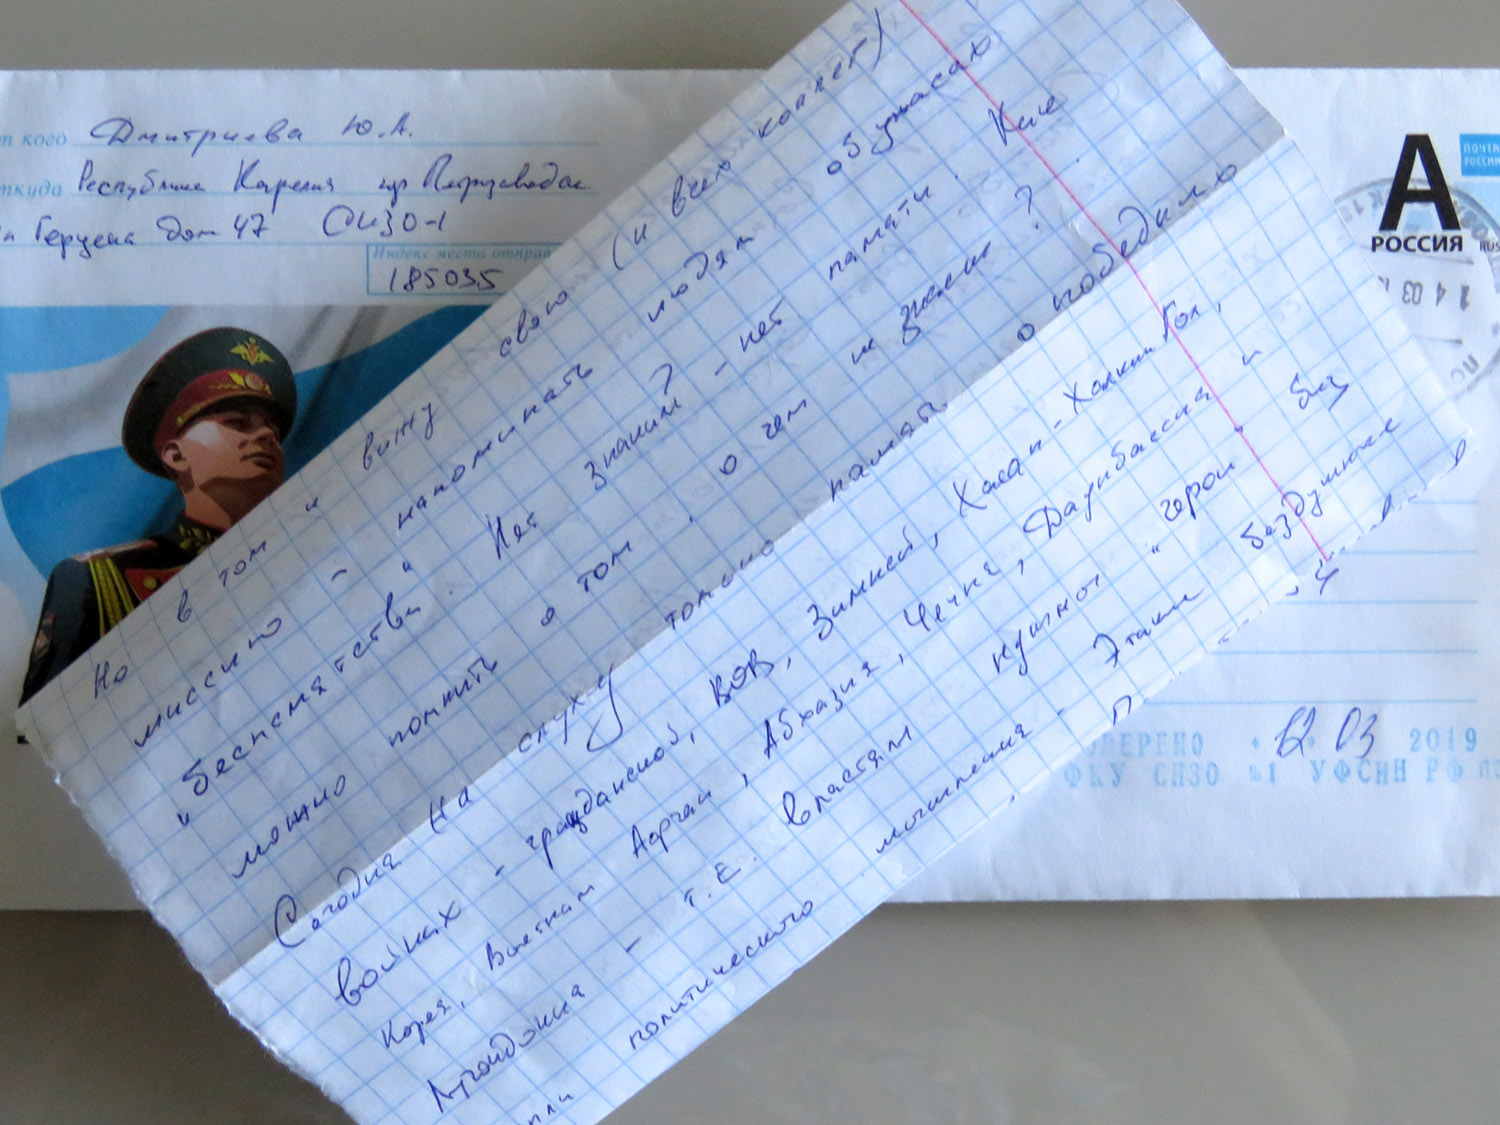 от кого Дмитриева Ю.А.
откуда Республика Карелия гор Петрозаводск
ул Герцена дом 47 СИЗО-1
Индекс места отправ
185035
А
РОССИЯ
RUS
ПОЧТА
РОССИИ
12.03 2019
ФКУ СИЗО №1 УФСИН РФ
Но в том и вижу свою (и всех коллег)
миссию - напоминать людям об ужасах
"беспамятства". Нет знаний - нет памяти. Как
можно помнить о том, о чем не знали?
Сегодня на слуху только память о победило
войнах - гражданской, ВОВ, Зимней, Хасан-Халкин Гол,
Корея, Вьетнам Афган, Абхазия, Чечня, Дамбассия и
Лугандония - т.е. властям нужны "герои" без
политического мышления. Этакие бездушные